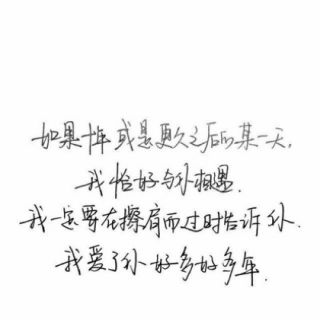 如果十年或是更久之后的某一天,
我恰好与你相遇.
我一定要在擦肩而过时告诉你.
我爱了你好多好多年.